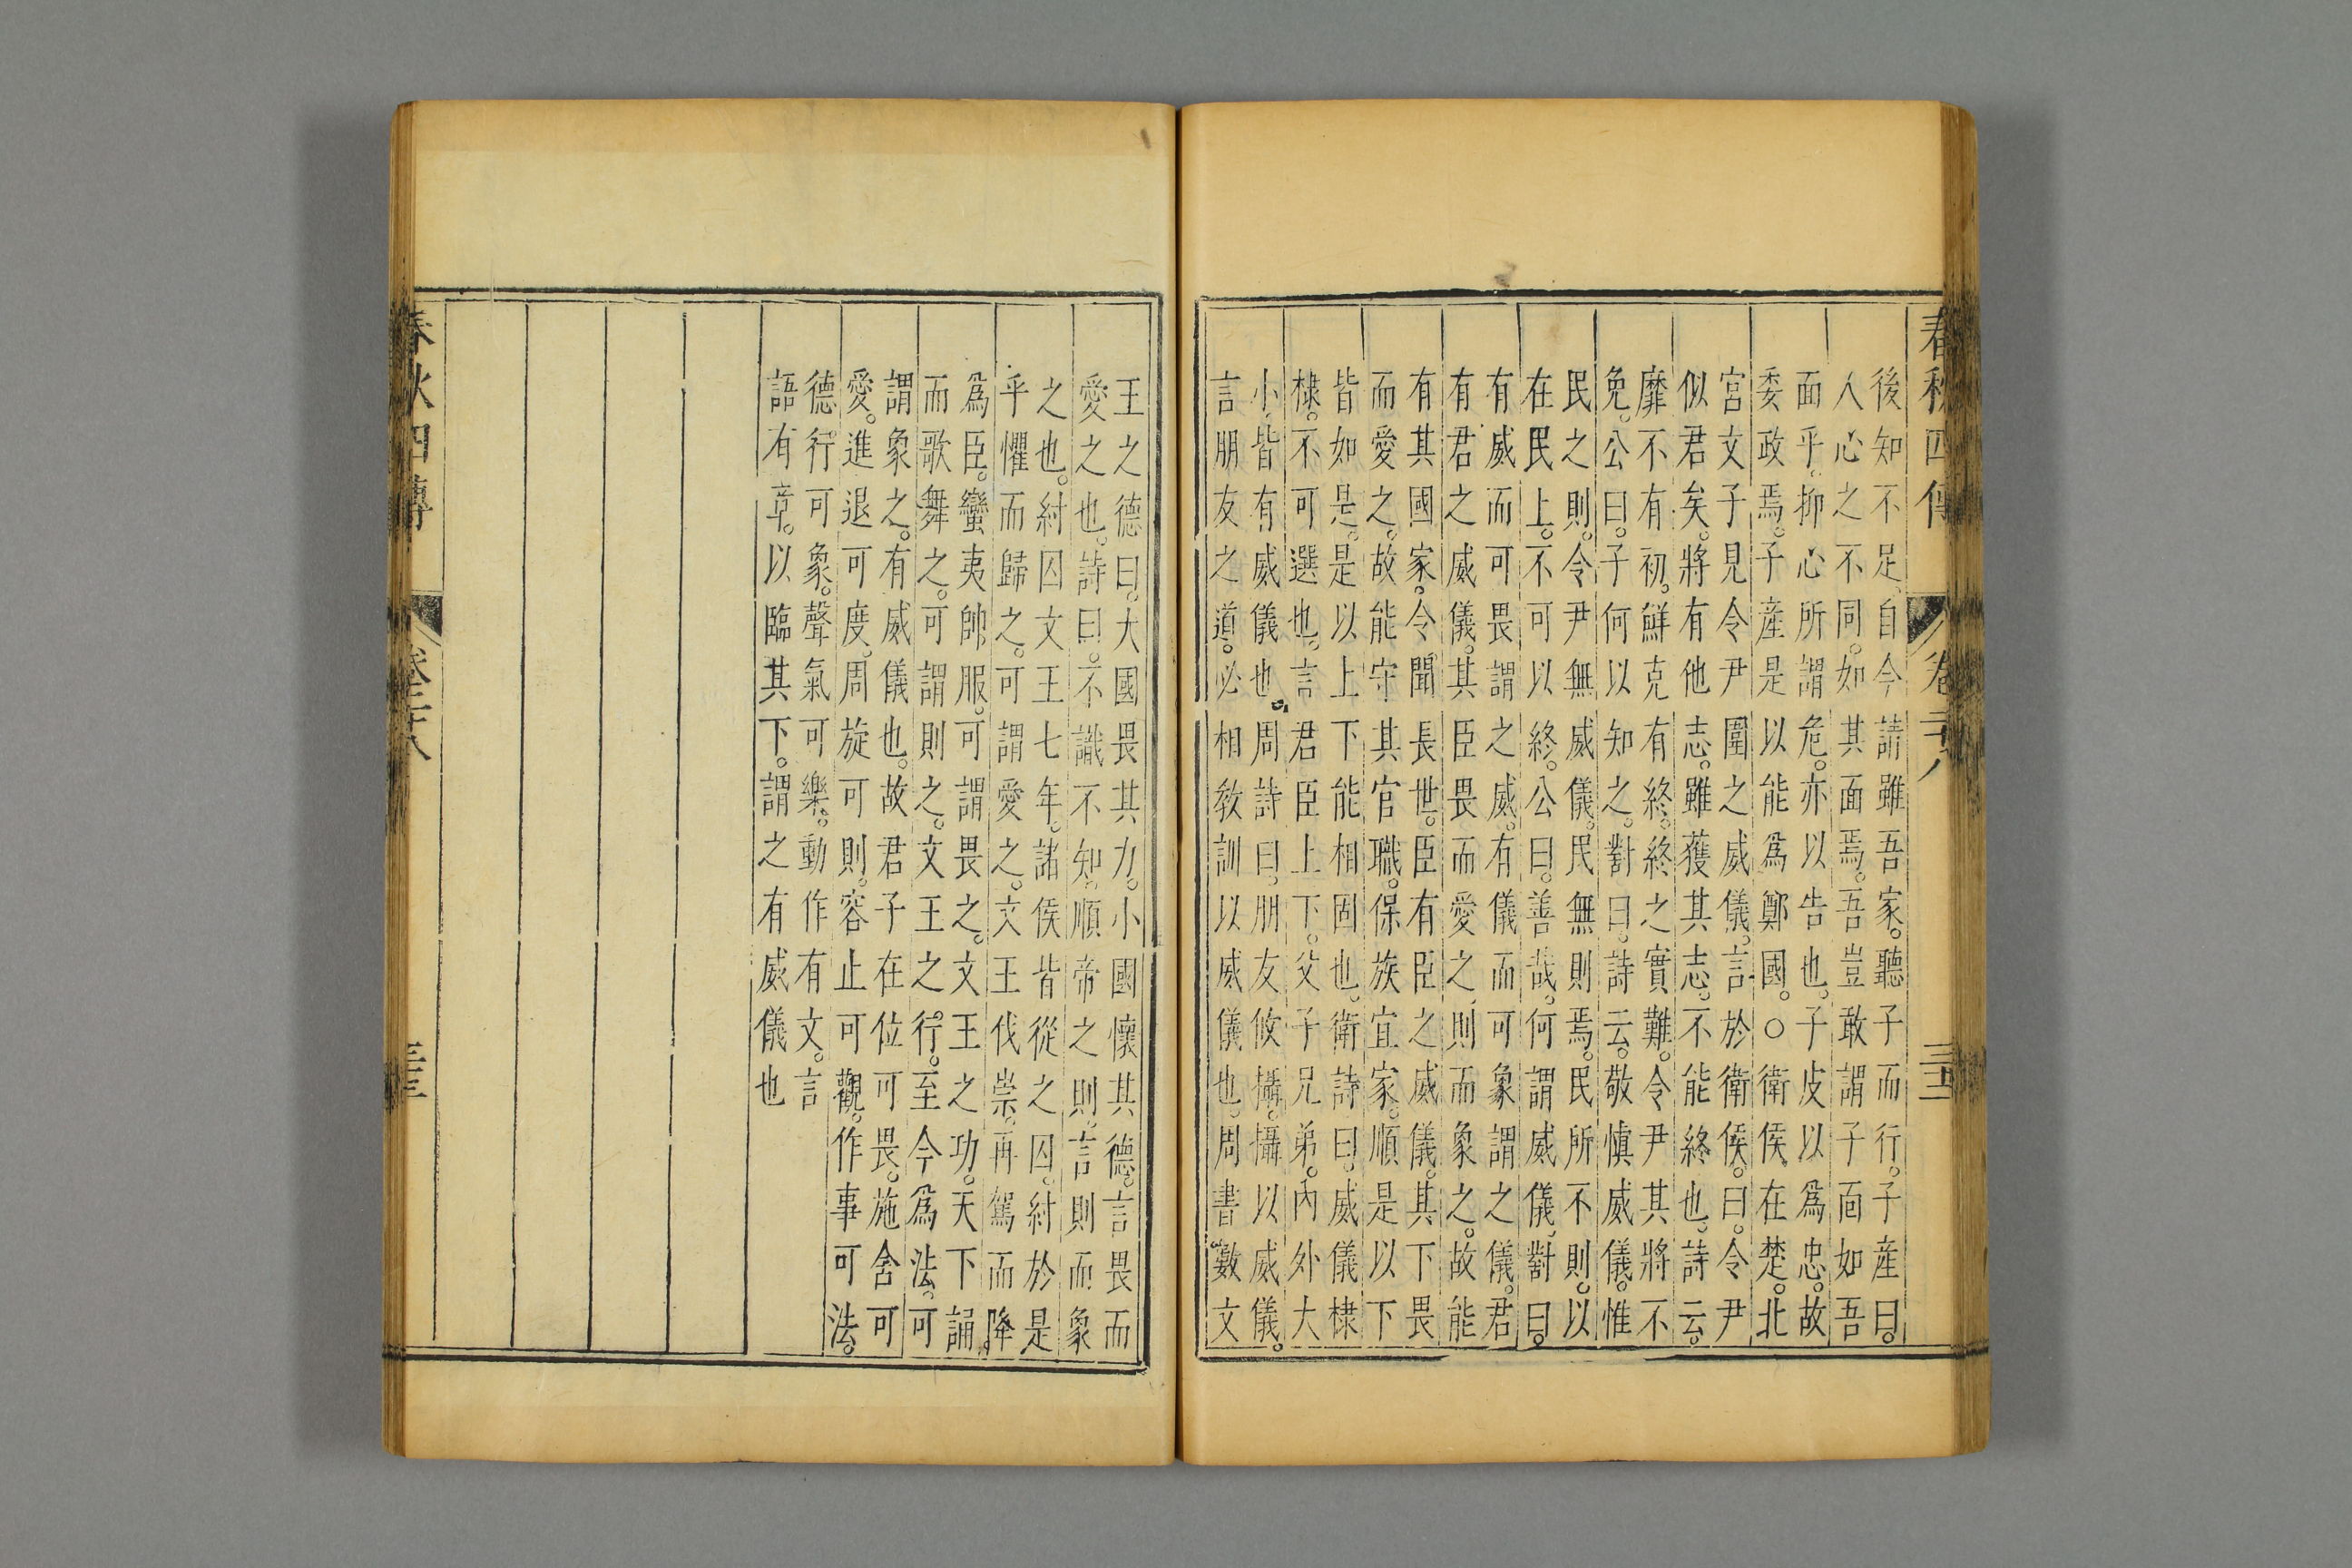 春秋四傳 卷二十八 三十三
後知不足自今請雖吾家。聽子而行。子産曰。
人心之不同。如其面焉。吾豈敢謂子面如吾
面乎。抑心所謂危。亦以告也。子皮以爲忠。故
委政焉。子産是以能爲鄭國。○衛侯在楚。北
宮文子見令尹圍之威儀。言於衛侯。曰。令尹
似君矣。將有他志。雖獲其志。不能終也。詩云。
靡不有初。鮮克有終。終之實難。令尹其將不
免。公曰。子何以知之。對曰。詩云。敬愼威儀。惟
民之則。令尹無威儀。民無則焉。民所不則。以
在民上。不可以終。公曰。善哉。何謂威儀。對曰。
有威而可畏謂之威。有儀而可象謂之儀。君
有君之威儀。其臣畏而愛之。則而象之。故能
有其國家。令聞長世。臣有臣之威儀。其下畏
而愛之。故能守其官職。保族宜家。順是以下
皆如是。是以上下能相固也。衛詩曰。威儀棣
棣。不可選也。言君臣上下。父子兄弟。內外大
小皆有威儀也。周詩曰。朋友攸攝。攝以威儀。
言朋友之道。必相敎訓以威儀也。周書數文
王之德曰。大國畏其力。小國懷其德。言畏而
愛之也。詩曰。不識不知。順帝之則。言則而象
之也。紂囚文王七年。諸侯皆從之囚。紂於是
乎懼而歸之。可謂愛之。文王伐崇。再駕而降
爲臣。蠻夷帥服。可謂畏之。文王之功。天下誦
而歌舞之。可謂則之。文王之行。至今爲法。可
謂象之。有威儀也。故君子在位可畏。施舍可
愛。進退可度。周旋可則。容止可觀。作事可法。
德行可象。聲氣可樂。動作有文。言
語有章。以臨其下。謂之有威儀也
春秋四傳 卷二十八 三十三